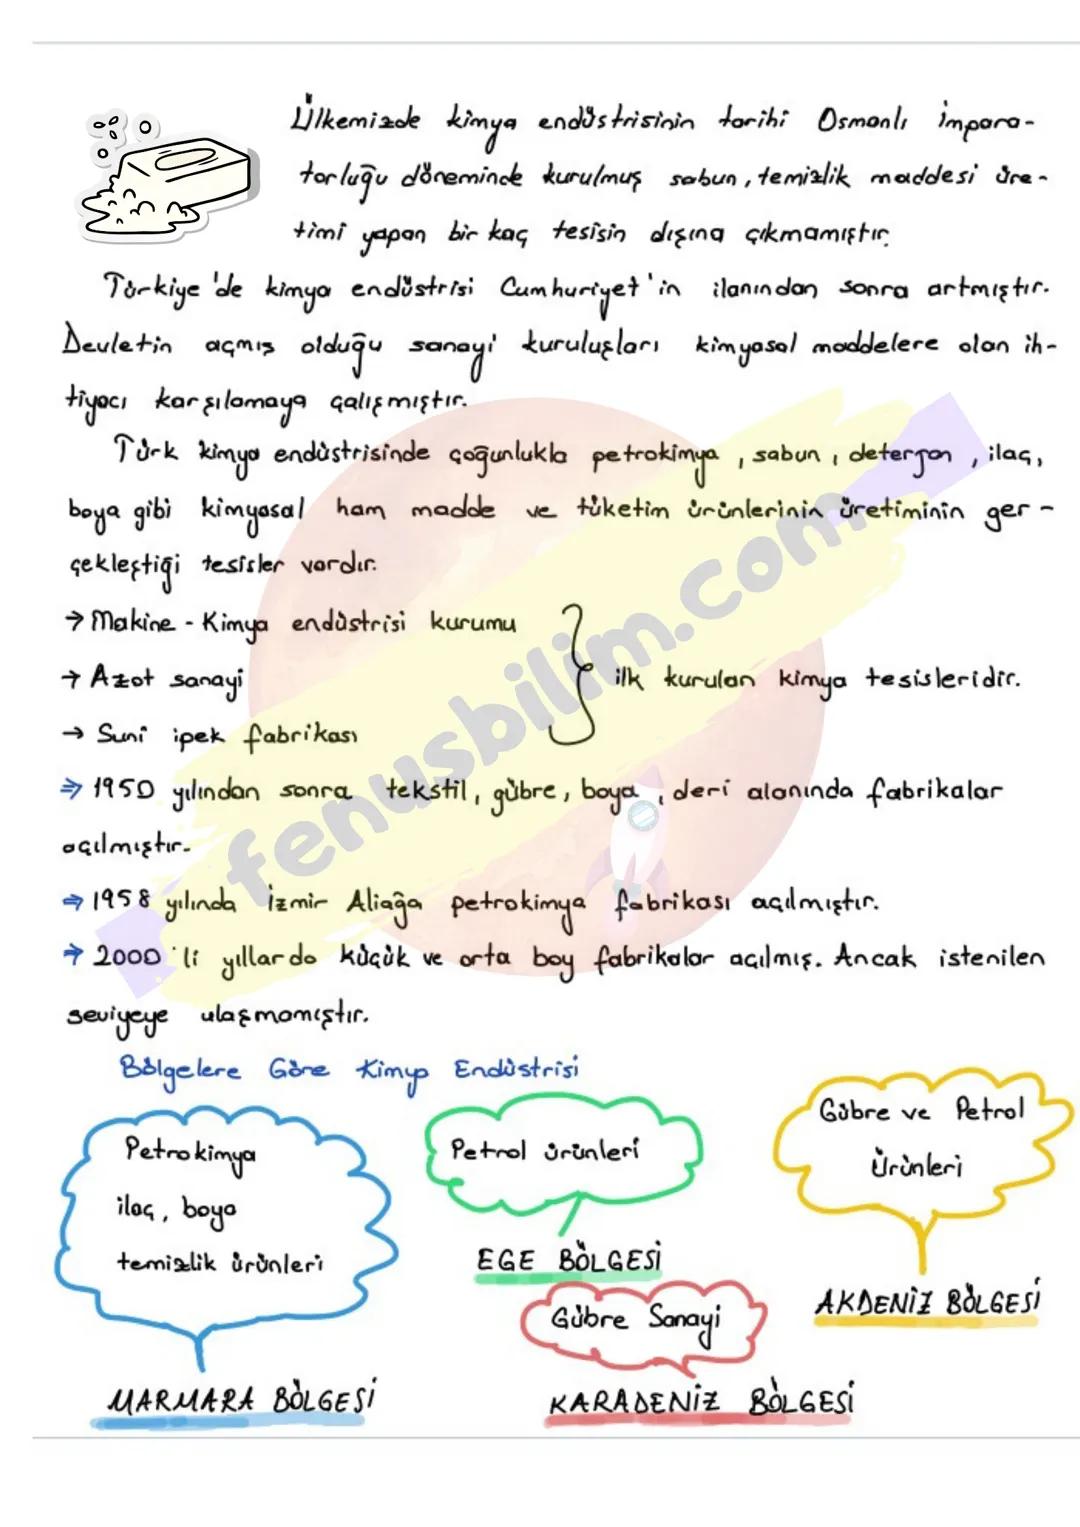 Ülkemizde kimya endüstrisinin tarihi Osmanlı impara-
torluğu döneminde kurulmuş sabun, temizlik maddesi üre-
timi yapan bir kaç tesisin dışına çıkmamıştır.
Türkiye'de kimya endüstrisi Cumhuriyet'in ilanından sonra artmıştır.
Devletin açmış olduğu sanayi kuruluşları kimyasal maddelere olan ih-
tiyacı karşılamaya çalışmıştır.
Türk kimya endüstrisinde çoğunlukla petrokimya, sabun, deterjan, ilaç,
boya gibi kimyasal ham madde ve tüketim ürünlerinin üretiminin ger-
çekleştiği tesisler vardır.
→ Makine - Kimya endüstrisi kurumu
→ Azot sanayi
ilk kurulan kimya tesisleridir.
→ Suni ipek fabrikası
⇒ 1950 yılından sonra tekstil, gübre, boya, deri alanında fabrikalar
açılmıştır.
⇒ 1958 yılında İzmir Aliağa petrokimya fabrikası açılmıştır.
→ 2000'li yıllarda küçük ve orta boy fabrikalar açılmış. Ancak istenilen
seviyeye ulaşmamıştır.
fenusbilim.com
Bölgelere Göre Kimya Endüstrisi
Petrokimya
ilaç, boya
temizlik ürünleri
MARMARA BÖLGESİ
Petrol ürünleri
EGE BÖLGESİ
Gübre Sanayi
KARADENİZ BÖLGESİ
Gübre ve Petrol
Ürünleri
AKDENİZ BÖLGESİ